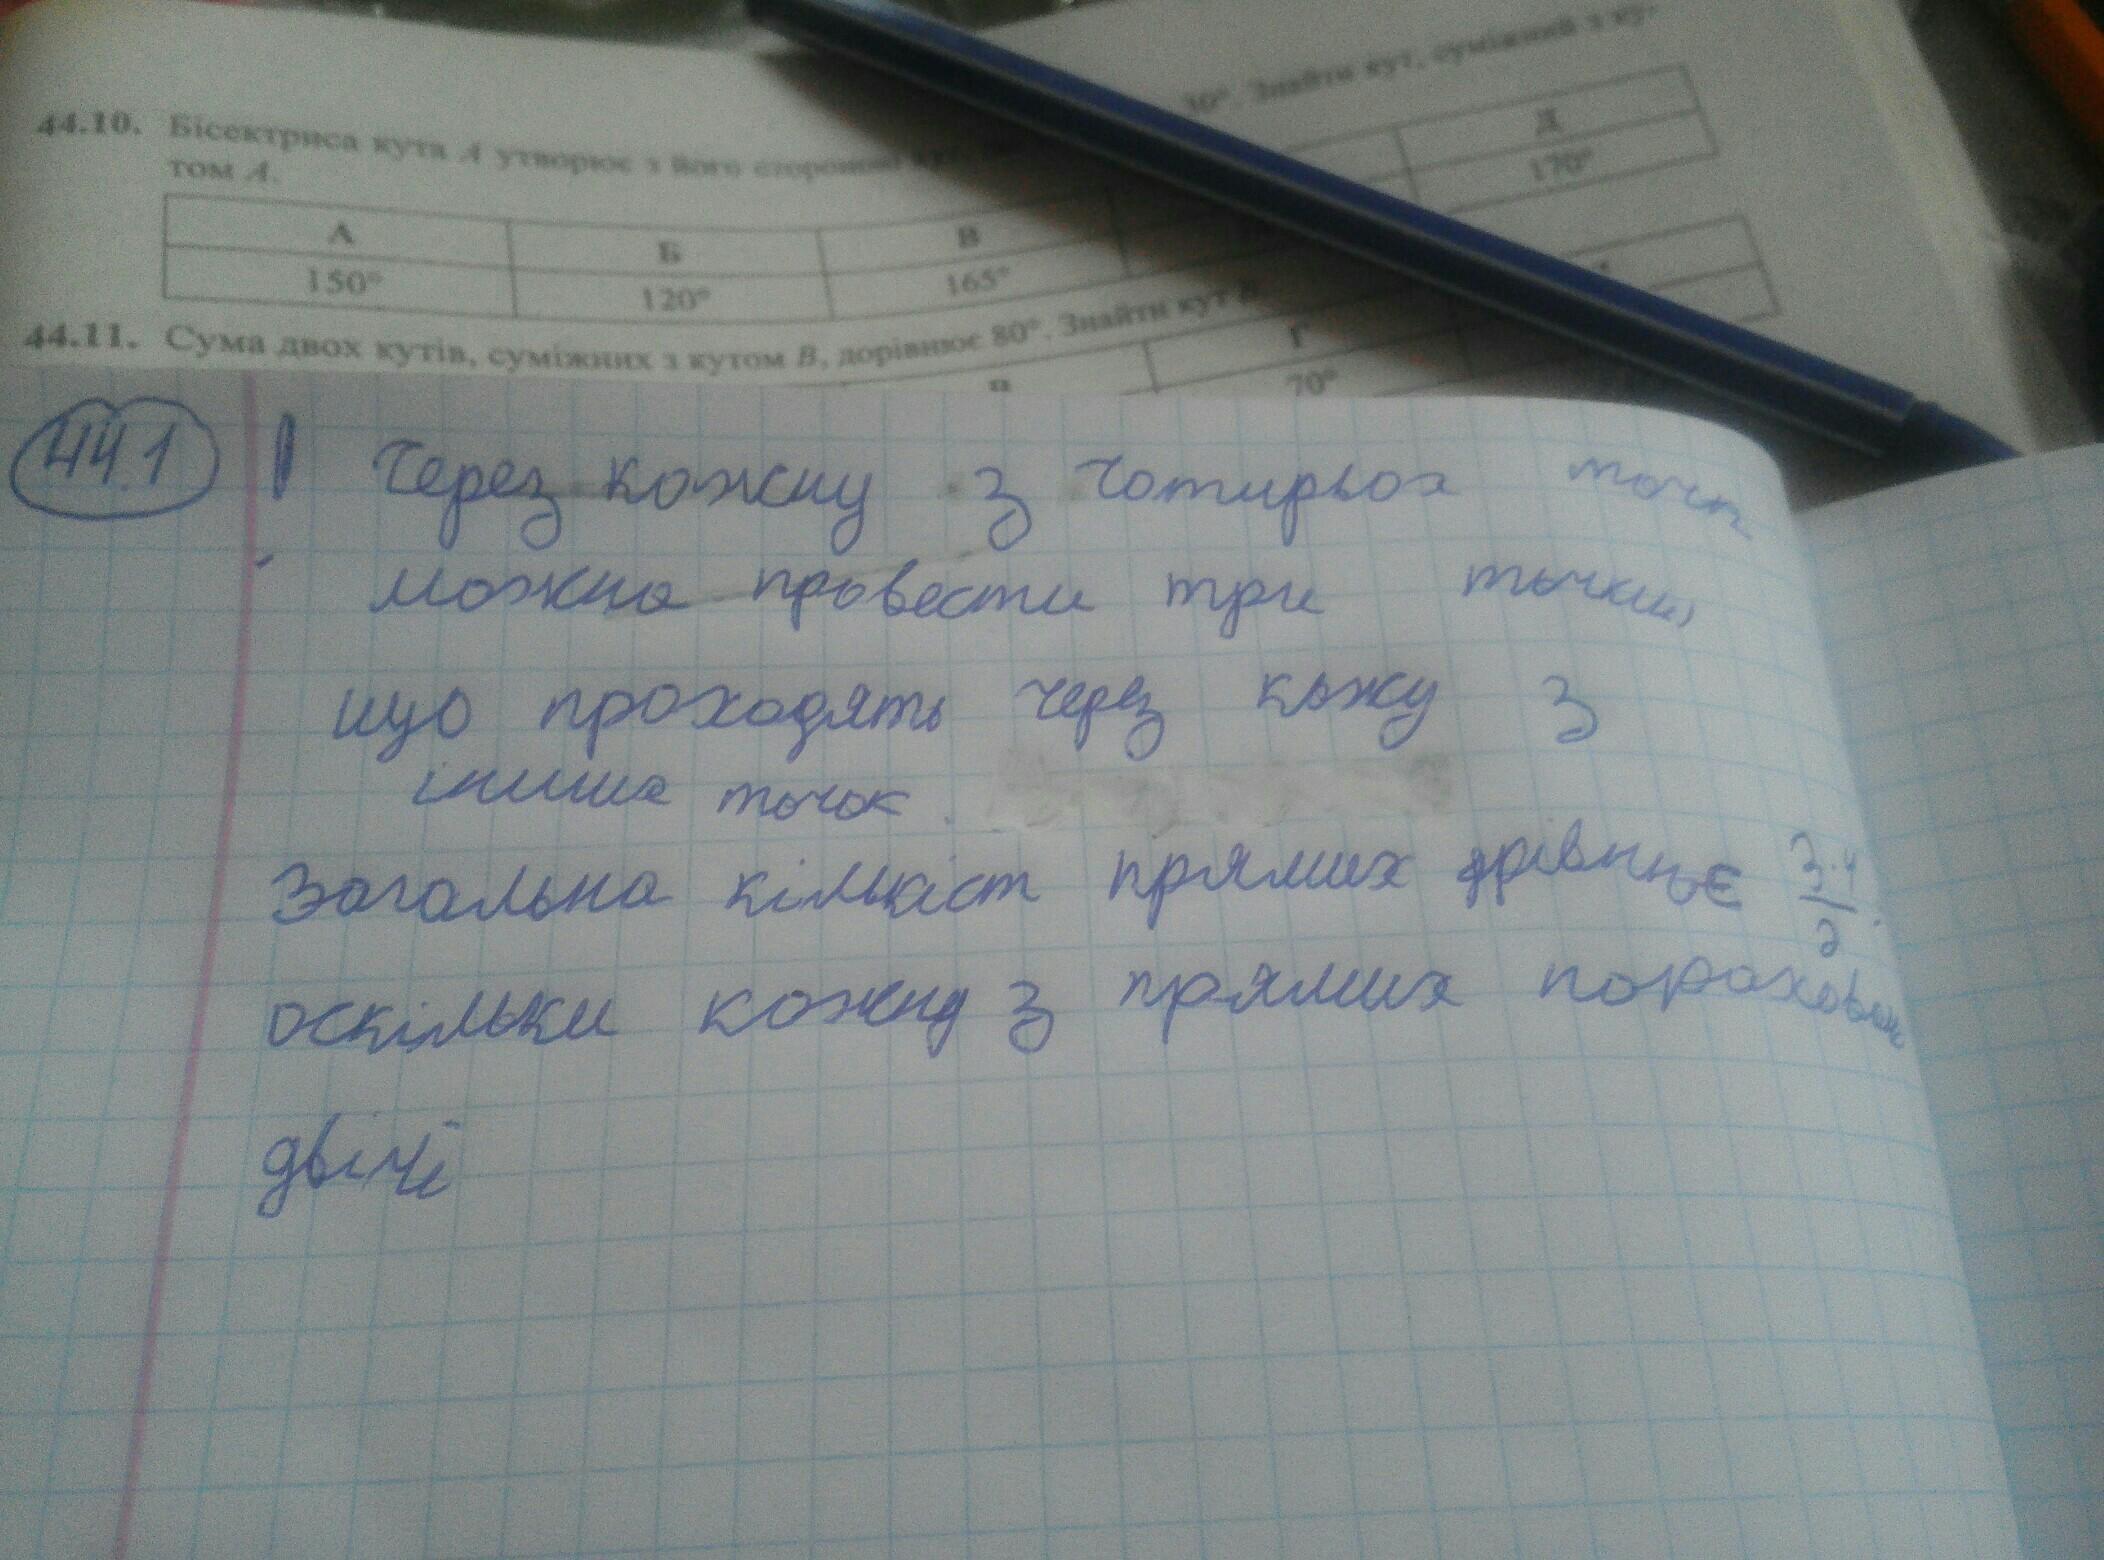 30°. Знайти кут, суміжний з ку-
44.10. Бісектриса кута A утворює з його стороною
том A.
А Б В Д
150° 120° 165° 170°
44.11. Сума двох кутів, суміжних з кутом B, дорівнює 80°. Знайти кут B
Г
70°
44.1 Через кожну з чотирьох точк
можна провести три точки,
що проходять через кожу з
інших точок.
Загальна кількіст прямих дрівнює 3·4/2.
оскільки кожна з прямих порахован
двічі